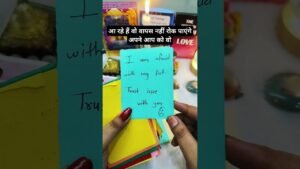 आ रहे हैं वो वापस नहीं रोक पाएंगे
अपने आप को वो
LOVE
I am afraid
with my
Trust issue
with you
with
Tru